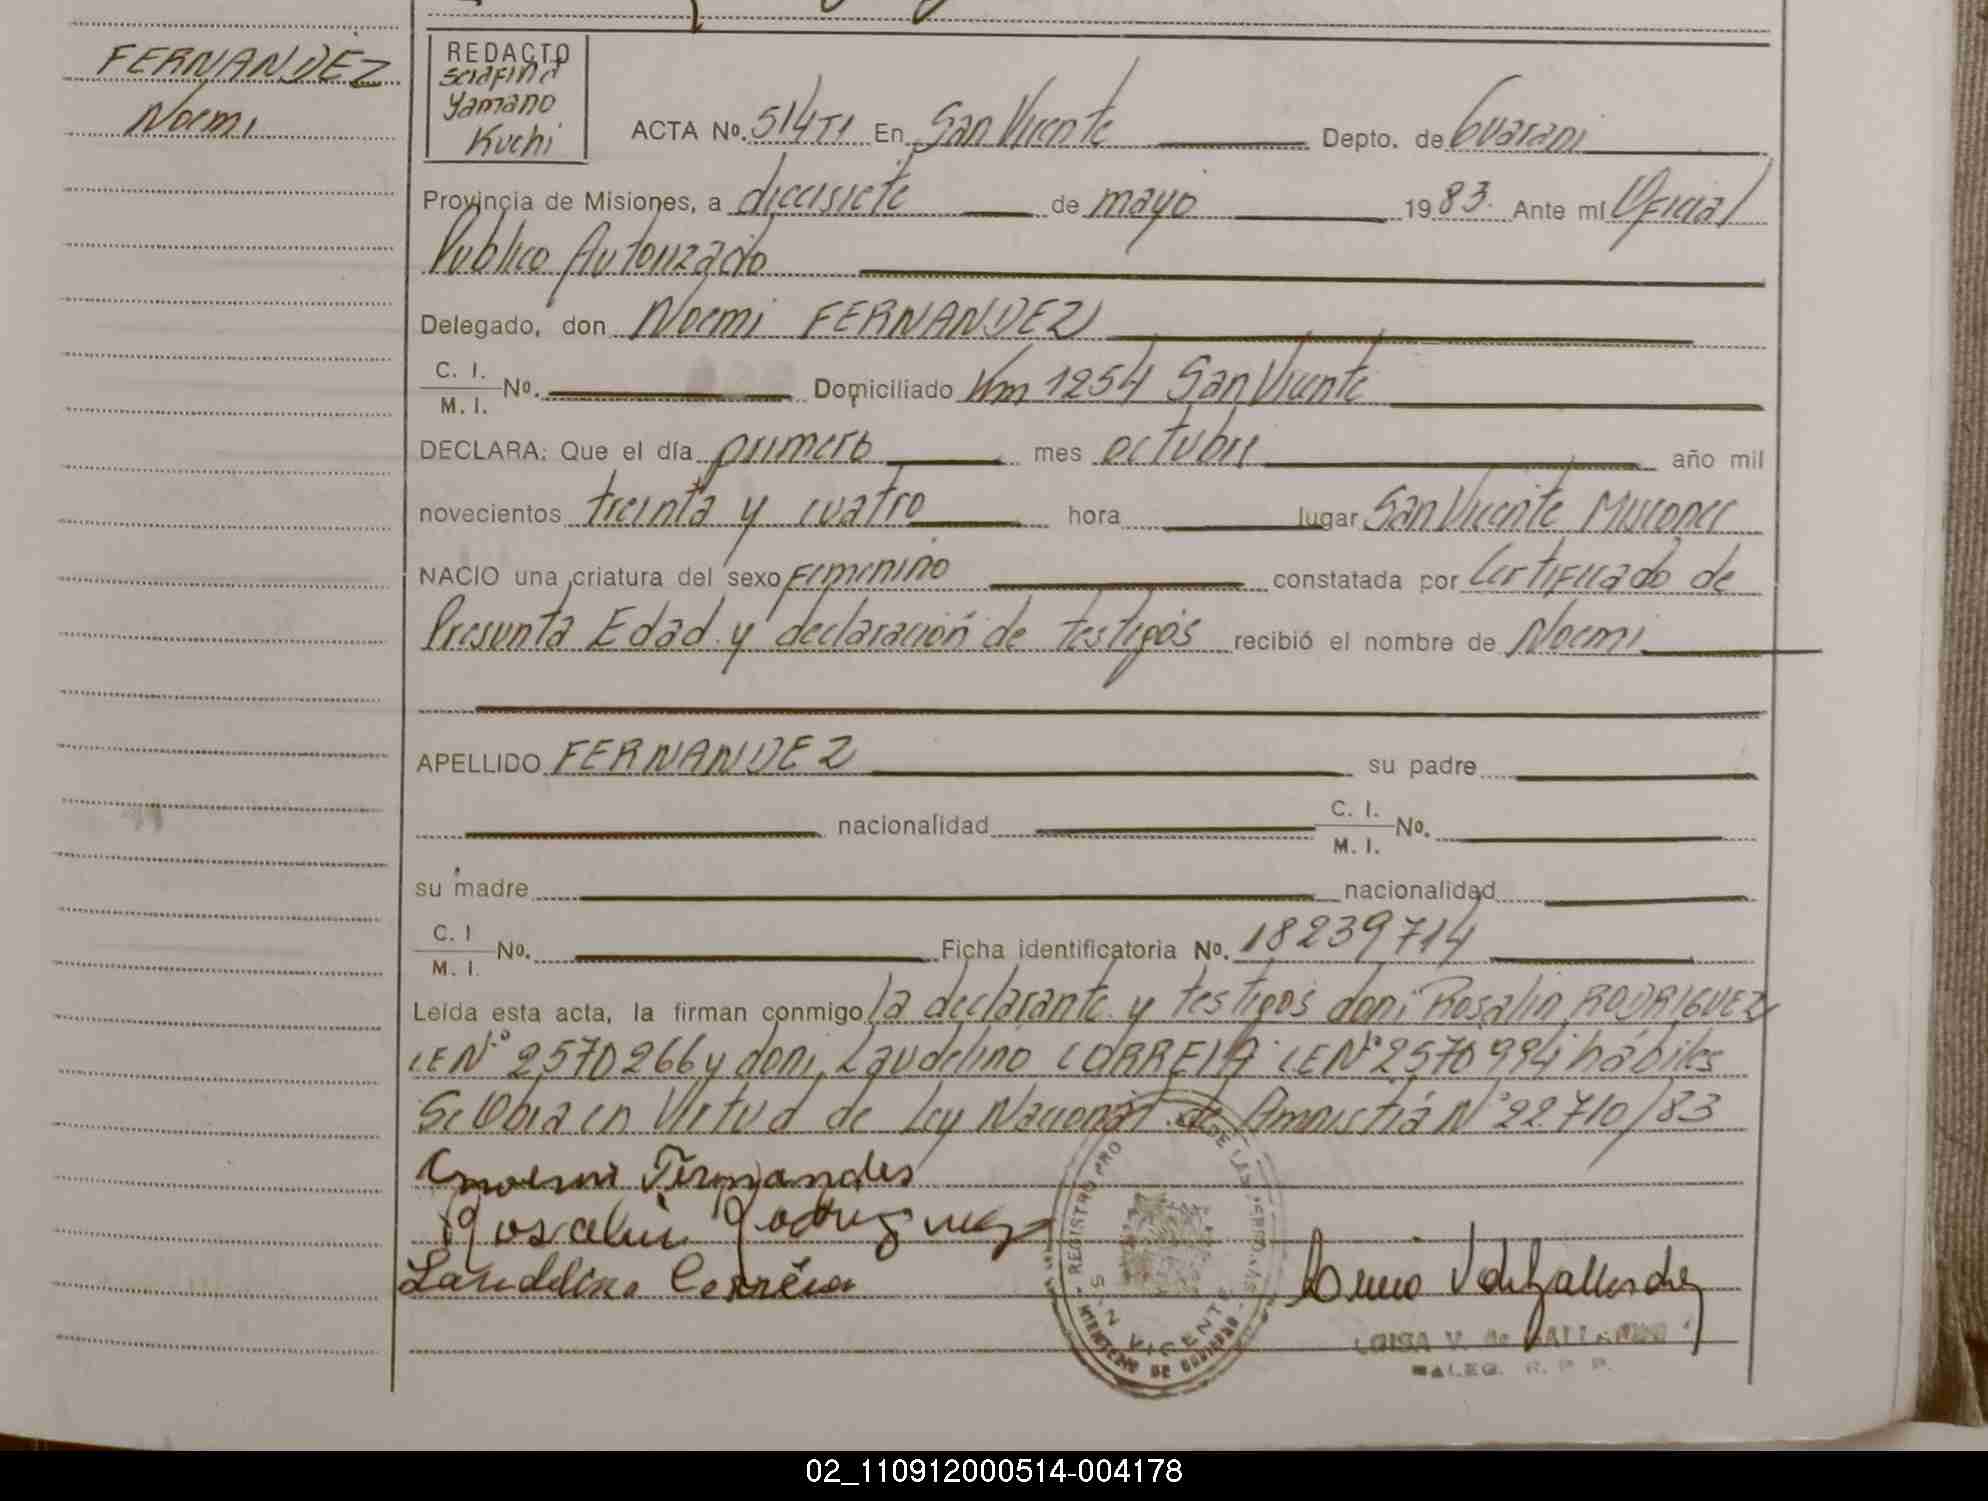 FERNANDEZ
Noemi
REDACTO
Serafina
Yamano
Kuchi
ACTA No. 514T1 En San Vicente Depto. de Guarani
Provincia de Misiones, a diecisiete de mayo 1983. Ante mí Oficial
Publico Autorizado
Delegado, don Noemi FERNANDEZ
C. I.
M. I. No. Domiciliado Km 1254 San Vicente
DECLARA: Que el día primero mes octubre año mil
novecientos treinta y cuatro hora lugar San Vicente Misiones
NACIO una criatura del sexo Femenino constatada por Certificado de
Presunta Edad y declaración de testigos recibió el nombre de Noemi
APELLIDO FERNANDEZ su padre
nacionalidad C. I.
M. I. No.
su madre nacionalidad
C. I
M. I. No. Ficha identificatoria No. 18239714
Leída esta acta, la firman conmigo la declarante y testigos don: Rosalin RODRIGUEZ
LE N° 2570266 y don: Laudelino CORREIA LE N° 2570994 hábiles
Se Obra en Virtud de Ley Nacional de Amnistiá N° 22.710/83
Noemi Fernandes
Rosalin Rodriguez
Laudelino Corrêia
REGISTRO PRO DE LAS PERSONAS
SAN VICENTE
LUISA V. de GALLARDO
DALEG. R. P. P.
02_110912000514-004178